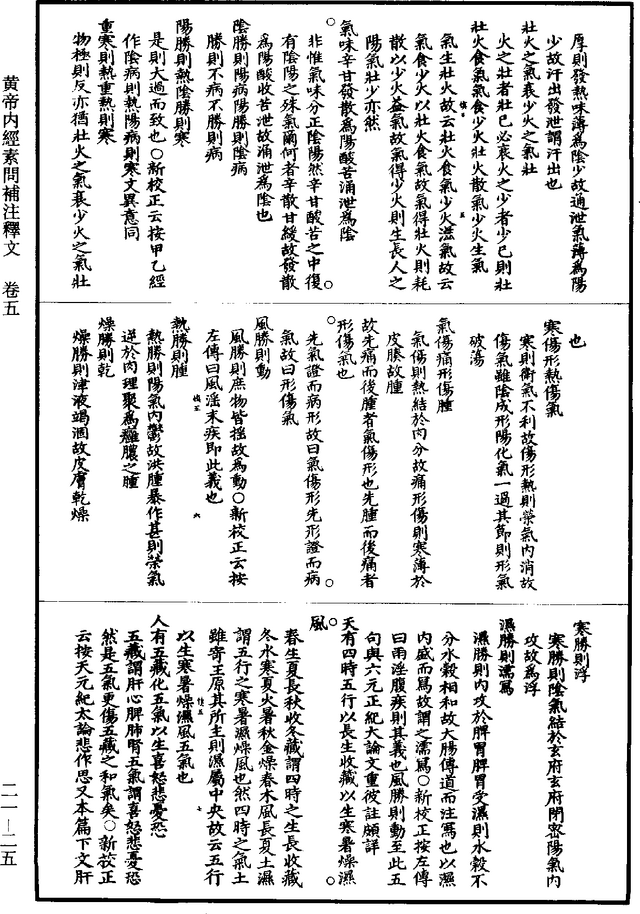 黄帝內經素問補注釋文　卷五
二一—二五
厚則發熱味薄為陰少故通泄氣薄為陽
少故汗出發泄謂汗出也
壯火之氣衰少火之氣壯
火之壯者壯已必衰火之少者少已則壯
壯火食氣氣食少火壯火散氣少火生氣
氣生壯火故云壯火食氣少火滋氣故云
氣食少火以壯火食氣故氣得壯火則耗
散以少火益氣故氣得少火則生長人之
陽氣壯少亦然
氣味辛甘發散為陽酸苦涌泄為陰
非惟氣味分正陰陽然辛甘酸苦之中復
有陰陽之殊氣爾何者辛散甘緩故發散
為陽酸收苦泄故涌泄為陰也
陰勝則陽病陽勝則陰病
勝則不病不勝則病
陽勝則熱陰勝則寒
是則大過而致也○新校正云按甲乙經
作陰病則熱陽病則寒文異意同
重寒則熱重熱則寒
物極則反亦猶壯火之氣衰少火之氣壯
也
寒傷形熱傷氣
寒則衛氣不利故傷形熱則榮氣內消故
傷氣雖陰成形陽化氣一過其節則形氣
被蕩
氣傷痛形傷腫
氣傷則熱結於肉分故痛形傷則寒薄於
皮腠故腫
故先痛而後腫者氣傷形也先腫而後痛者
形傷氣也
先氣證而病形故曰氣傷形先形證而病
氣故曰形傷氣
風勝則動
風勝則庶物皆搖故為動○新校正云按
左傳曰風淫末疾即此義也
熱勝則腫
熱勝則陽氣內鬱故洪腫暴作甚則榮氣
逆於肉理聚為癰膿之腫
燥勝則乾
燥勝則津液竭涸故皮膚乾燥
寒勝則浮
寒勝則陰氣結於玄府玄府閉密陽氣內
攻故為浮
濕勝則濡寫
濕勝則內攻於脾胃脾胃受濕則水穀不
分水穀相和故大腸傳道而注寫也以濕
內盛而寫故謂之濡寫○新校正按左傳
曰雨淫腹疾則其義也風勝則動至此五
句與六元正紀大論文重彼註頗詳
天有四時五行以長生收藏以生寒暑燥濕
風
春生夏長秋收冬藏謂四時之生長收藏
冬水寒夏火暑秋金燥春木風長夏土濕
謂五行之寒暑濕燥風也然四時之氣土
雖寄王原其所主則濕屬中央故云五行
以生寒暑燥濕風五氣也
人有五藏化五氣以生喜怒悲憂恐
五藏謂肝心脾肺腎五氣謂喜怒悲憂恐
然是五氣更傷五藏之和氣矣○新校正
云按天元紀大論悲作思又本篇下文肝